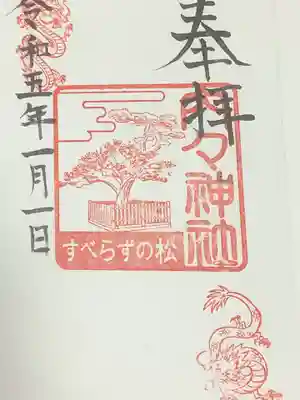 奉拝
々神社
すべらずの松
令和五年一月一日